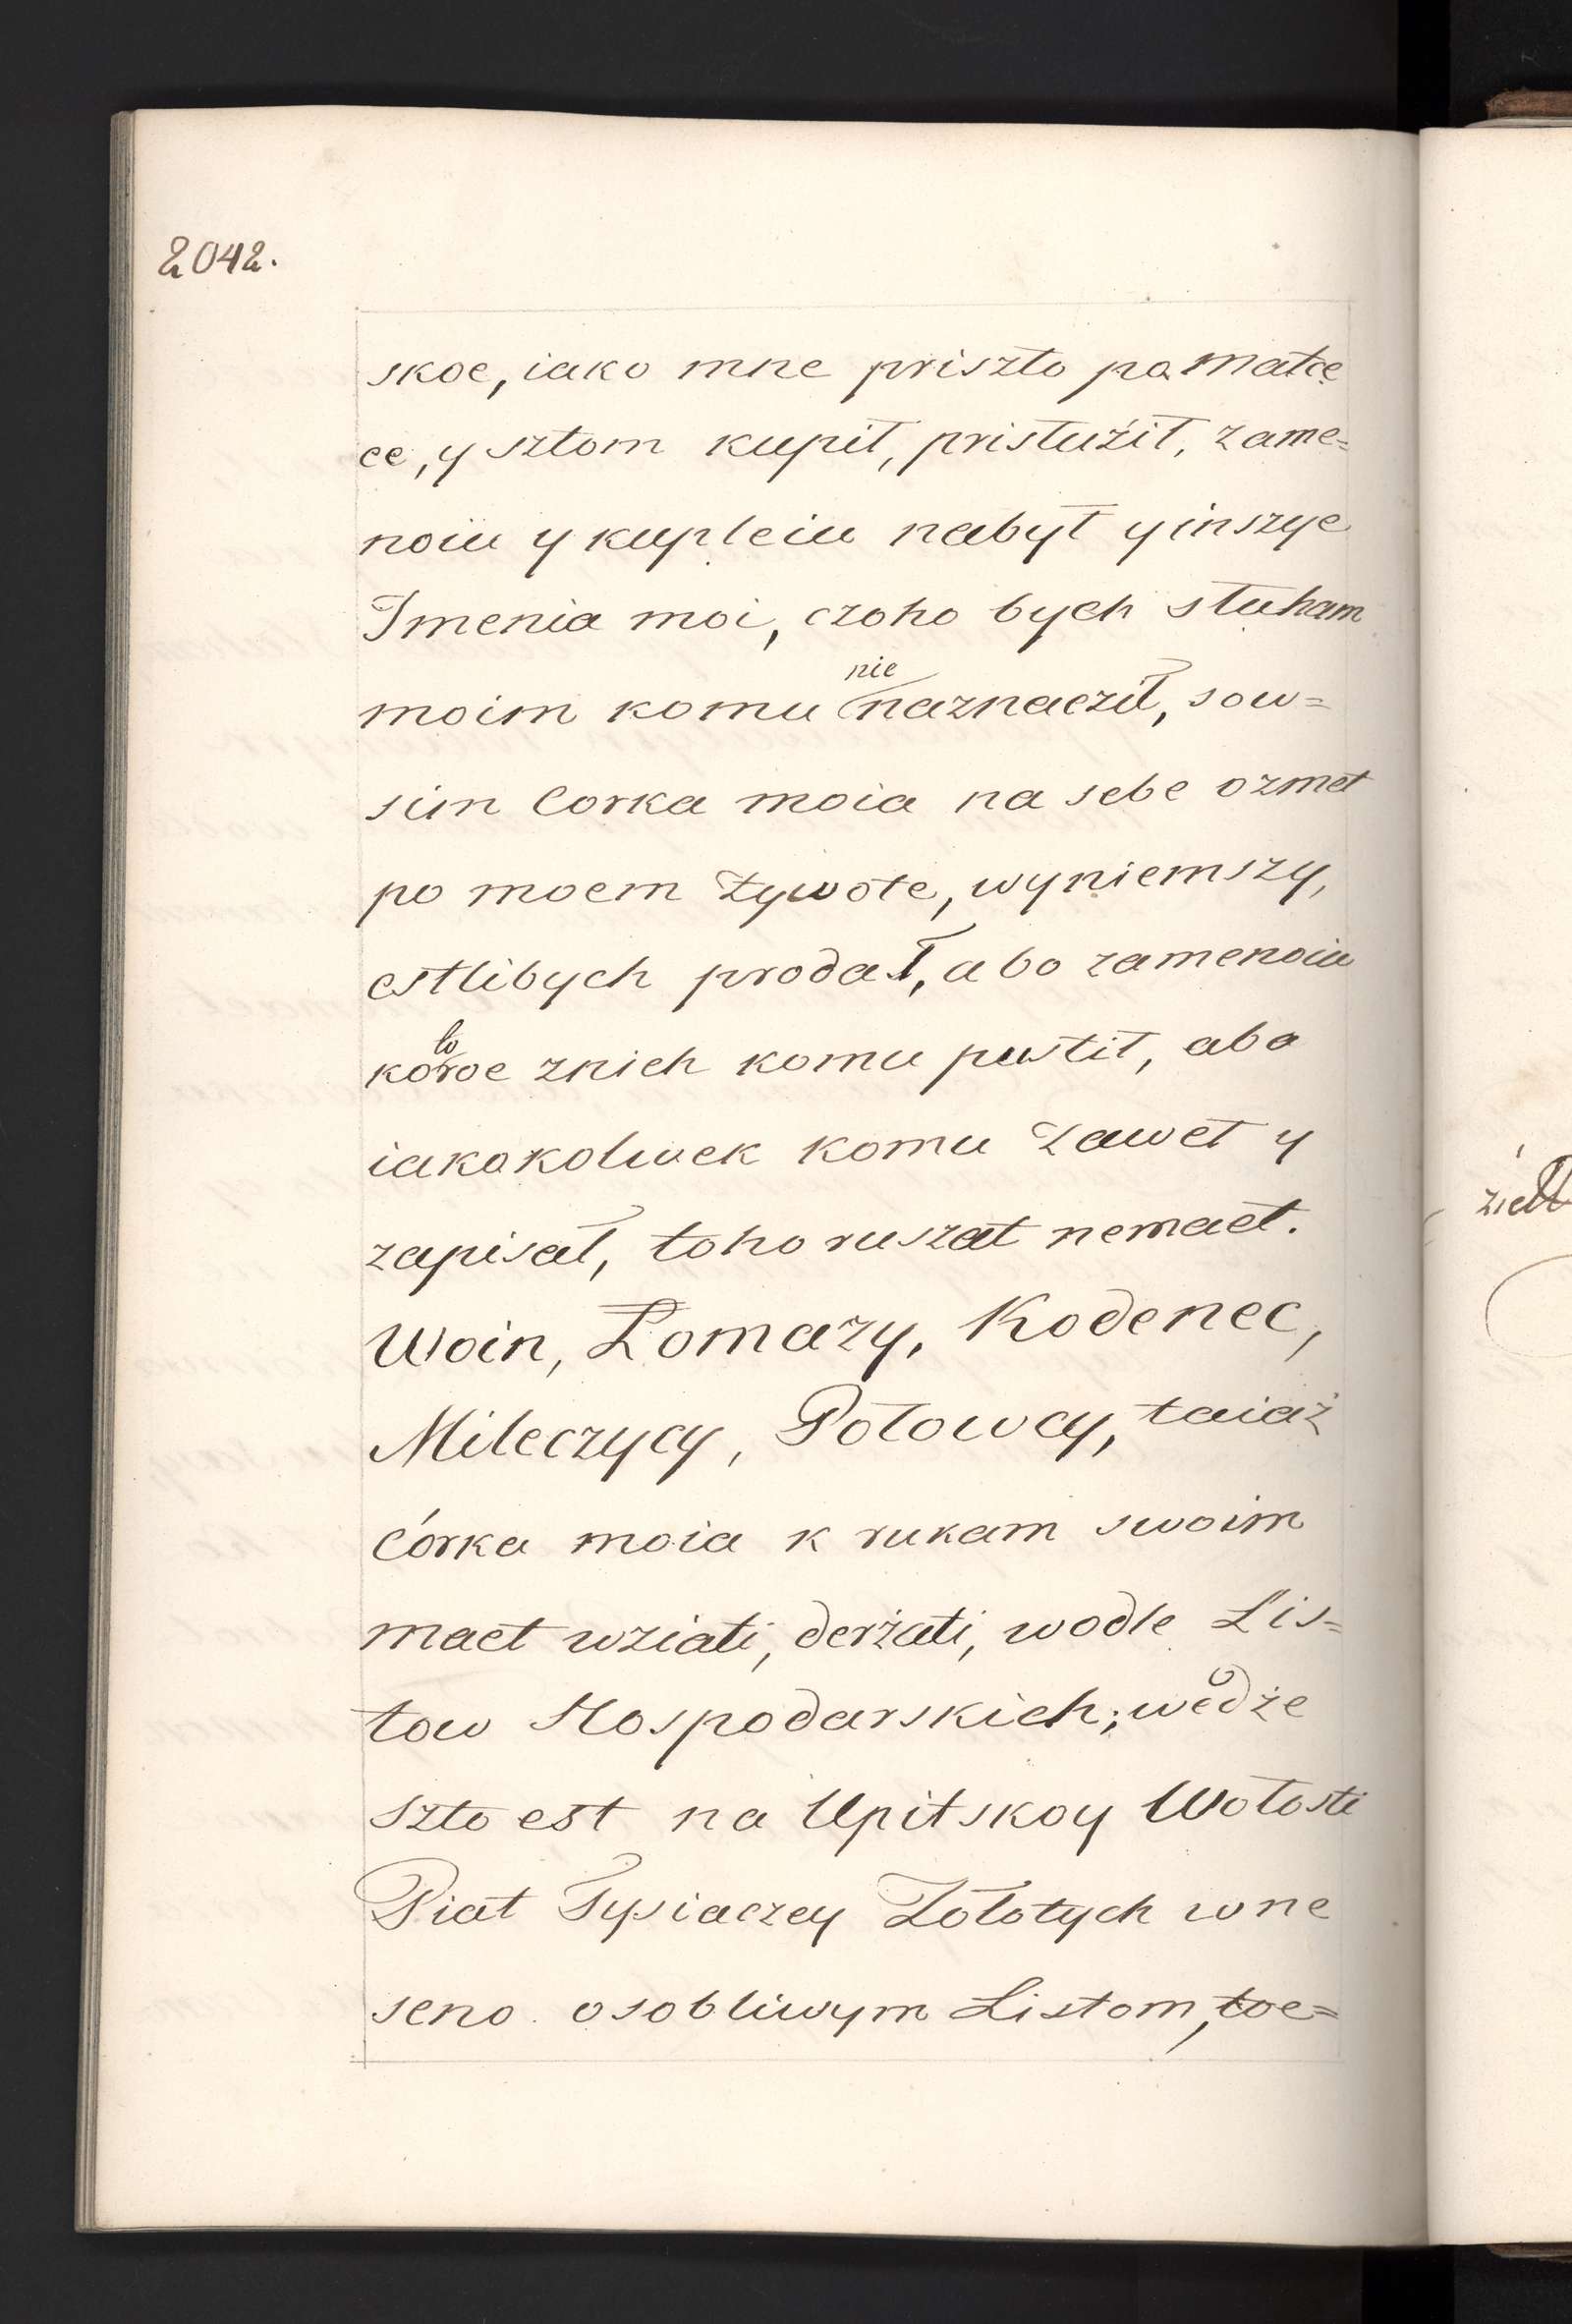 2042.
skoe, iako mne priszło po matce
ce, y sztom kupił, prisłużił, zame=
noiu y kupleiu nabył y inszye
Imenia moi, czoho bych słuham
moim komu nie naznacził, sow=
sim Corka moia na sebe ozmet
po moem żywote, wyniemszy,
estlibych prodał, abo zamenoiu
kotoroe znich komu pustił, abo
iakokolwek komu zaweł y
zapisał, toho ruszat nemaet.
Woin, Łomazy, Kodenec,
Mileczycy, Połowcy, taiaż
Córka moia k rukam swoim
maet wziati, derżati, wodle Lis=
tow Hospodarskich; wedże
szto est na Upitskoy Wołosti
Piat Tysiaczey Zołotych wne
seno osobliwym Listom, toe=